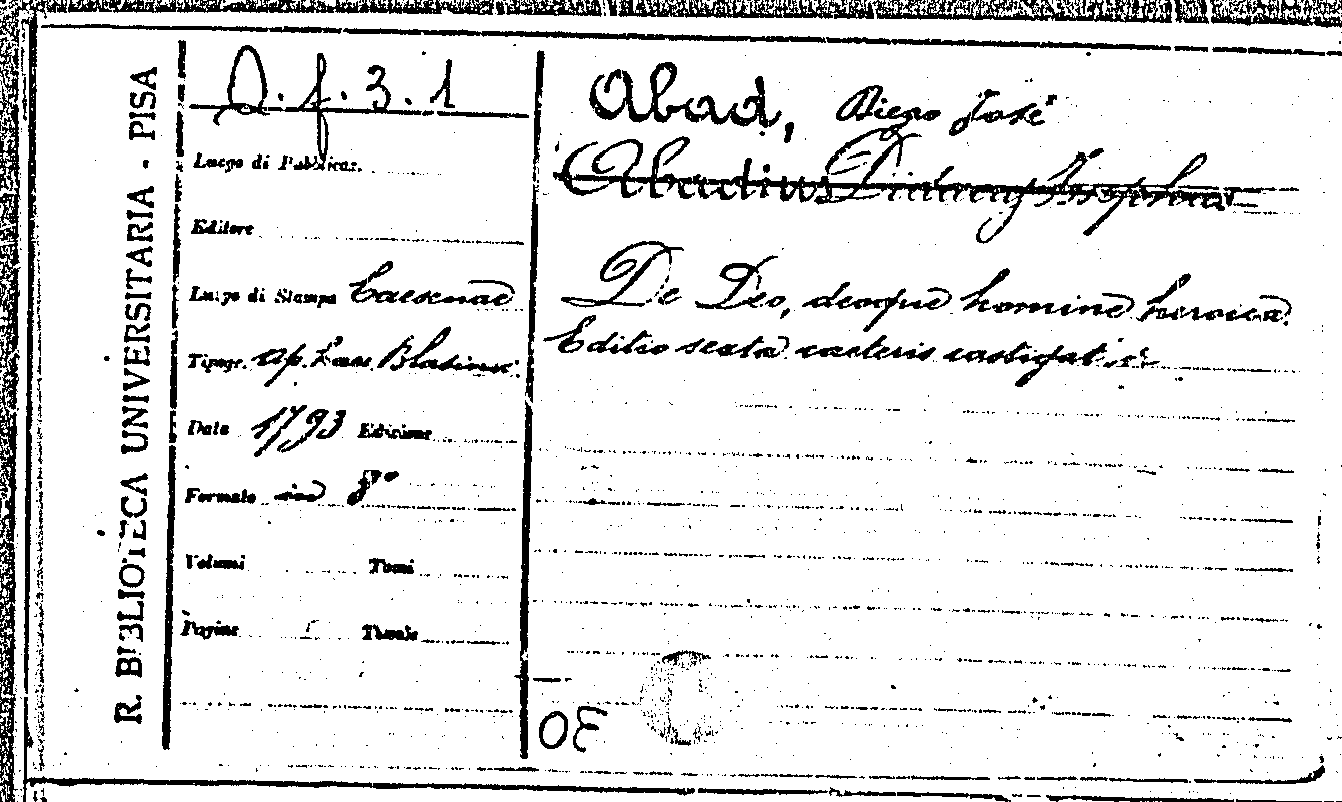 R. BIBLIOTECA UNIVERSITARIA - PISA
Q. f. 3. 1
Luogo di Pubblicaz.
Editore
Luogo di Stampa Caesenae
Tipogr. ap. Blasinum
Data 1793 Edizione
Formato in 8°
Volumi Tomi
Pagine Tavole
Abad, Diego José
Abadius Didacus Josephus
De Deo, deoque homine heroica.
Editio sexta caeteris castigatior
OE